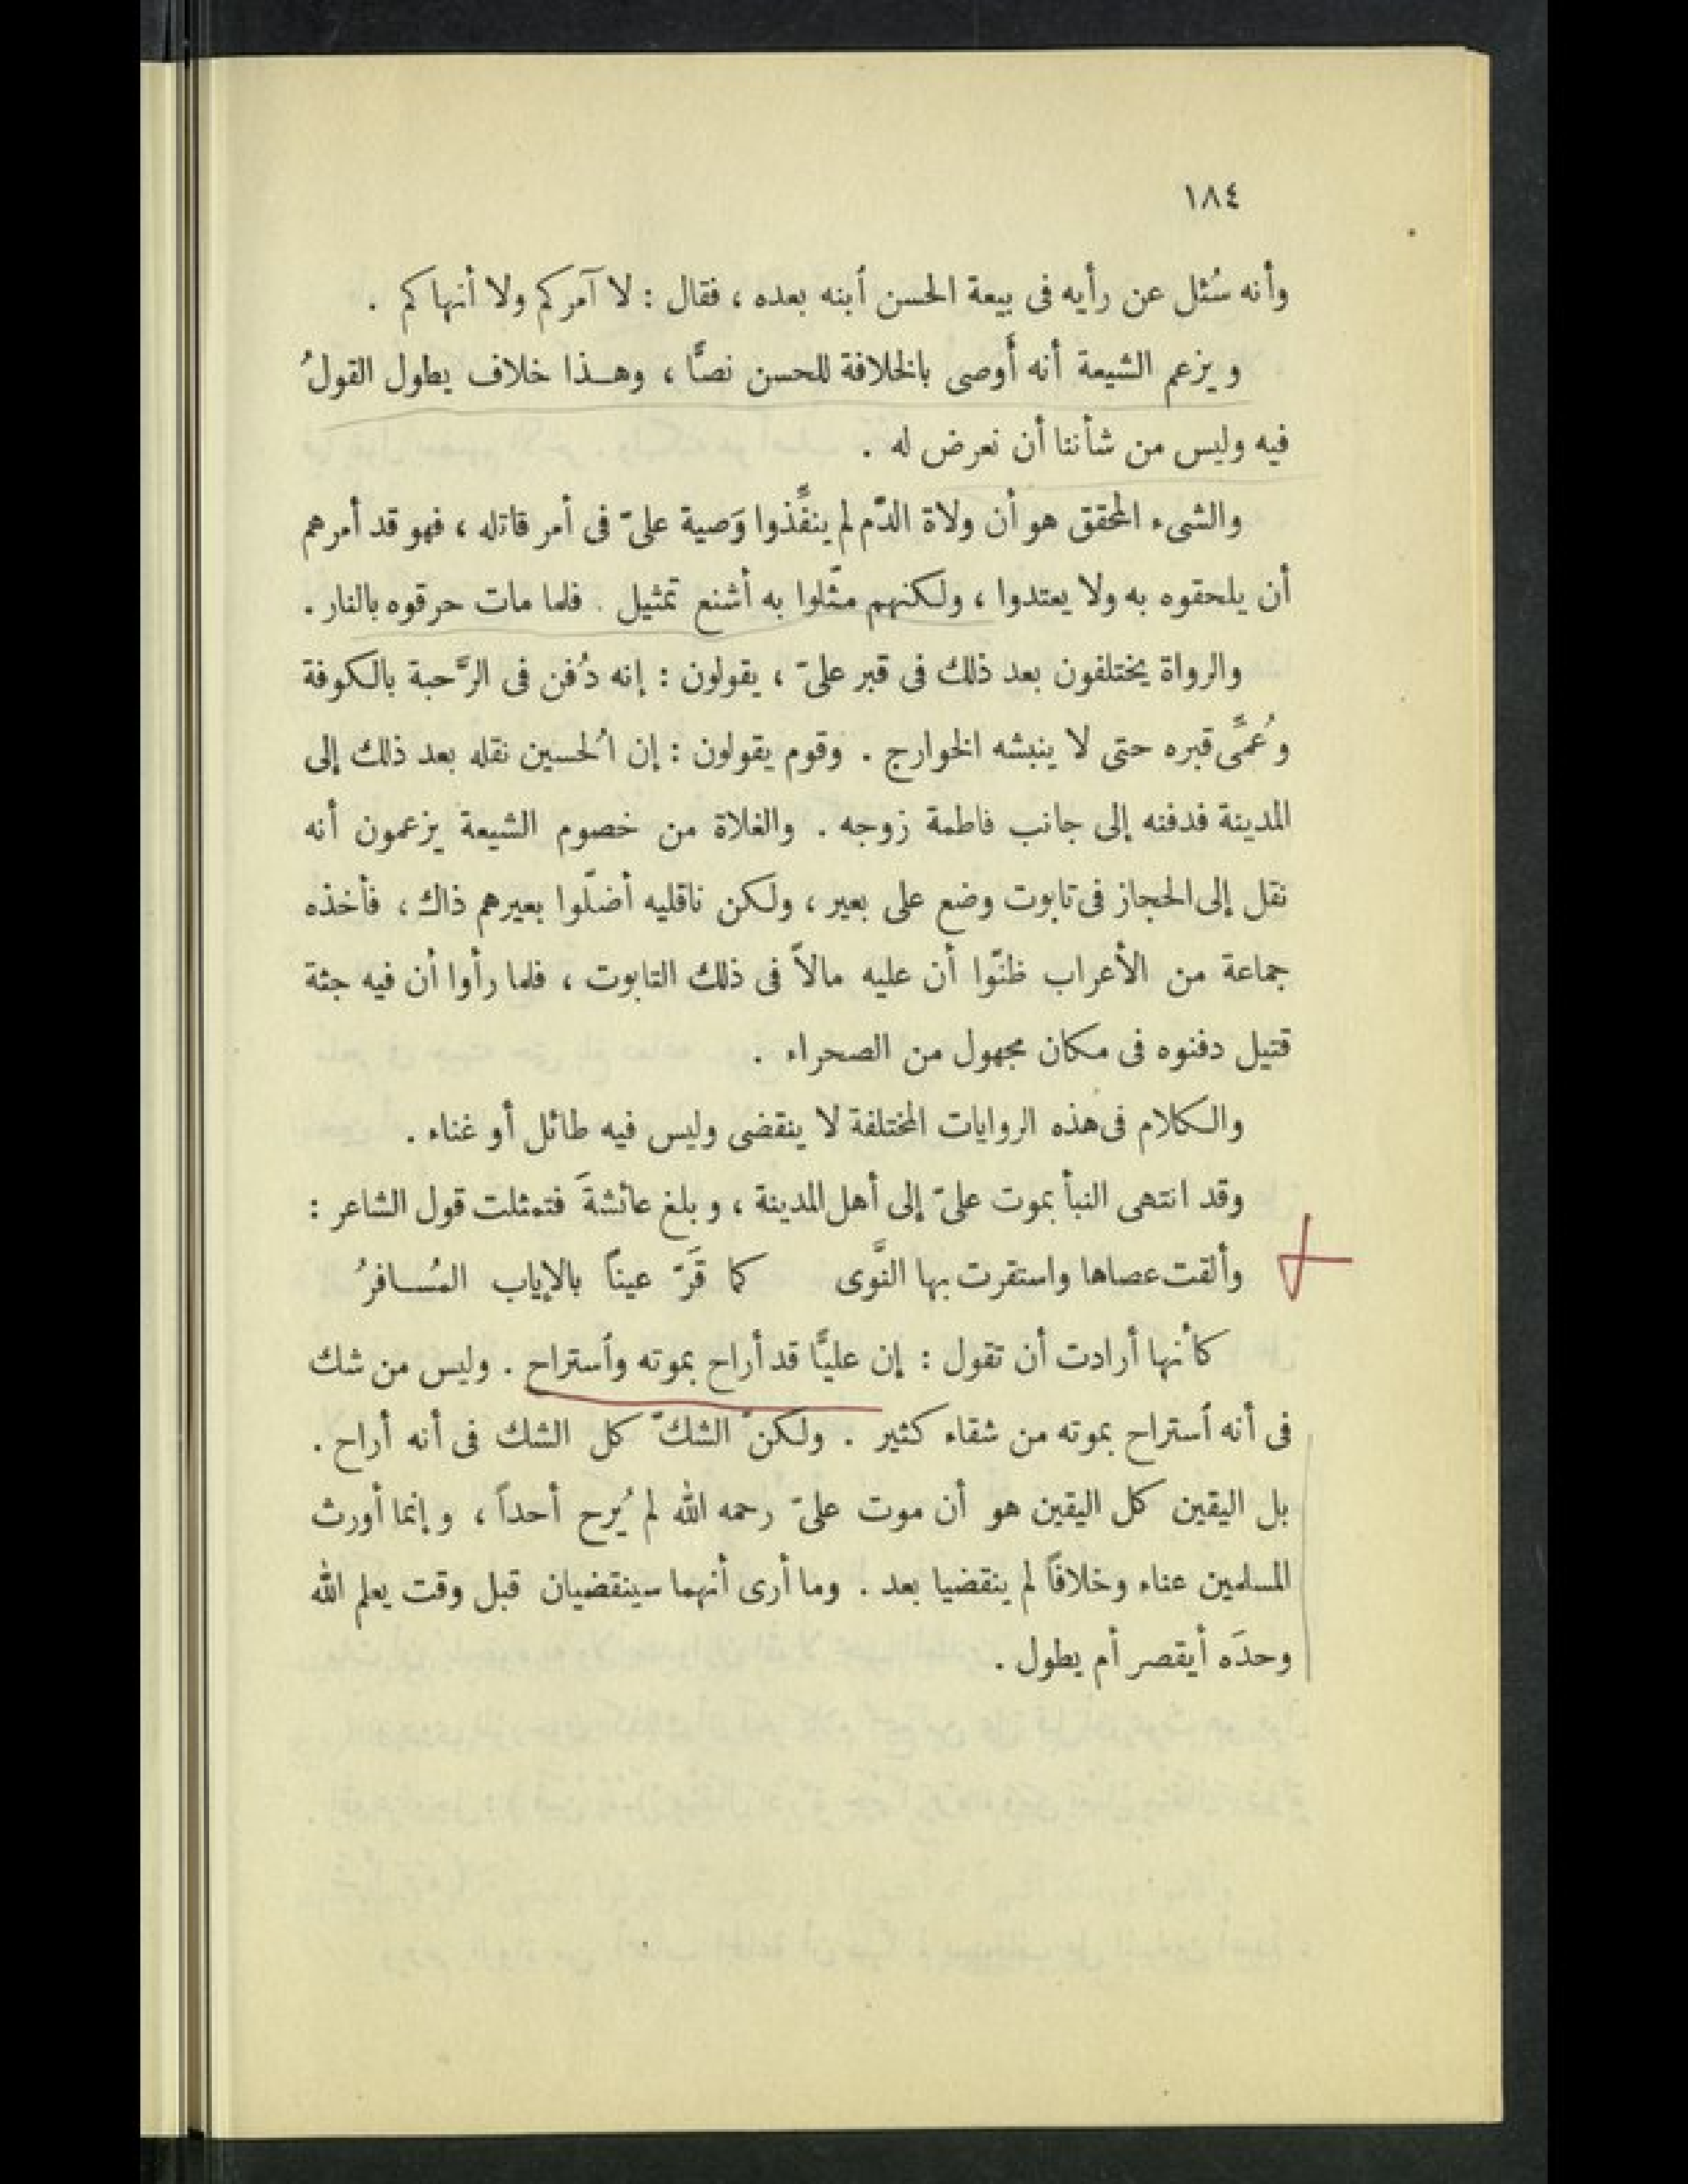 ١٨٤
وأنه سُئل عن رأيه فى بيعة الحسن ٱبنه بعده ، فقال : لا آمركم ولا أنهاكم .
ويزعم الشيعة أنه أَوصى بالخلافة للحسن نصًّا ، وهـذا خلاف يطول القولُ
فيه وليس من شأننا أن نعرض له .
والشىء المحقق هو أن ولاة الدّم لم ينفِّذوا وَصية علىّ فى أمر قاتله ، فهو قد أمرهم
أن يلحقوه به ولا يعتدوا ، ولكنهم مثّلوا به أشنع تمثيل . فلما مات حرقوه بالنار .
والرواة يختلفون بعد ذلك فى قبر علىّ ، يقولون : إنه دُفن فى الرَّحبة بالكوفة
وعُمِّى قبره حتى لا ينبشه الخوارج . وقوم يقولون : إن الحُسين نقله بعد ذلك إلى
المدينة فدفنه إلى جانب فاطمة زوجه . والغلاة من خصوم الشيعة يزعمون أنه
نقل إلى الحجاز فى تابوت وضع على بعير ، ولكن ناقليه أضلّوا بعيرهم ذاك ، فأخذه
جماعة من الأعراب ظنّوا أن عليه مالاً فى ذلك التابوت ، فلما رأوا أن فيه جثة
قتيل دفنوه فى مكان مجهول من الصحراء .
والكلام فى هذه الروايات المختلفة لا ينقضى وليس فيه طائل أو غناء .
وقد انتهى النبأ بموت علىّ إلى أهل المدينة ، وبلغ عائشةَ فتمثلت قول الشاعر :
وألقت عصاها واستقرت بها النَّوى كما قَرّ عيناً بالإياب المُسـافرُ
كأنها أرادت أن تقول : إن عليًّا قد أراح بموته وٱستراح . وليس من شك
فى أنه ٱستراح بموته من شقاء كثير . ولكنّ الشكّ كل الشك فى أنه أراح .
بل اليقين كل اليقين هو أن موت علىّ رحمه الله لم يُرح أحداً ، وإنما أورث
المسلمين عناء وخلافاً لم ينقضيا بعد . وما أرى أنهما سينقضيان قبل وقت يعلم الله
وحدَه أيقصر أم يطول .